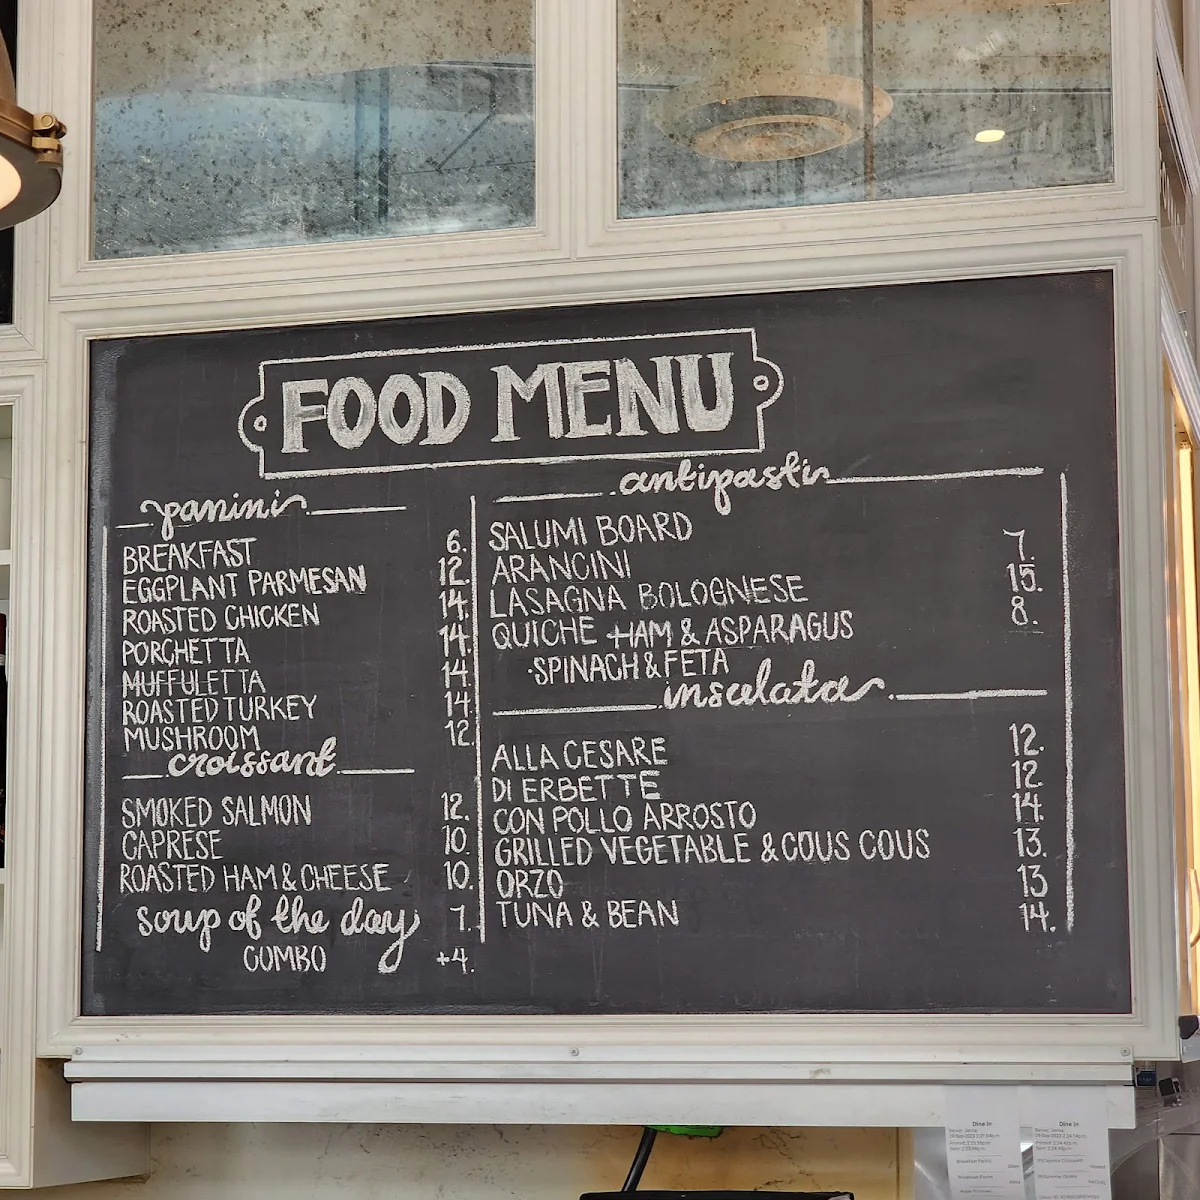 FOOD MENU
panini
BREAKFAST 6.
EGGPLANT PARMESAN 12.
ROASTED CHICKEN 14.
PORCHETTA 14.
MUFFULETTA 14.
ROASTED TURKEY 14.
MUSHROOM 12.
croissant
SMOKED SALMON 12.
CAPRESE 10.
ROASTED HAM & CHEESE 10.
soup of the day 7.
COMBO +4.
antipasti
SALUMI BOARD
ARANCINI 7.
LASAGNA BOLOGNESE 15.
QUICHE HAM & ASPARAGUS 8.
·SPINACH & FETA
insalata
ALLA CESARE 12.
DI ERBETTE 12.
CON POLLO ARROSTO 14.
GRILLED VEGETABLE & COUS COUS 13.
ORZO 13
TUNA & BEAN 14.
Dine In
Dine In